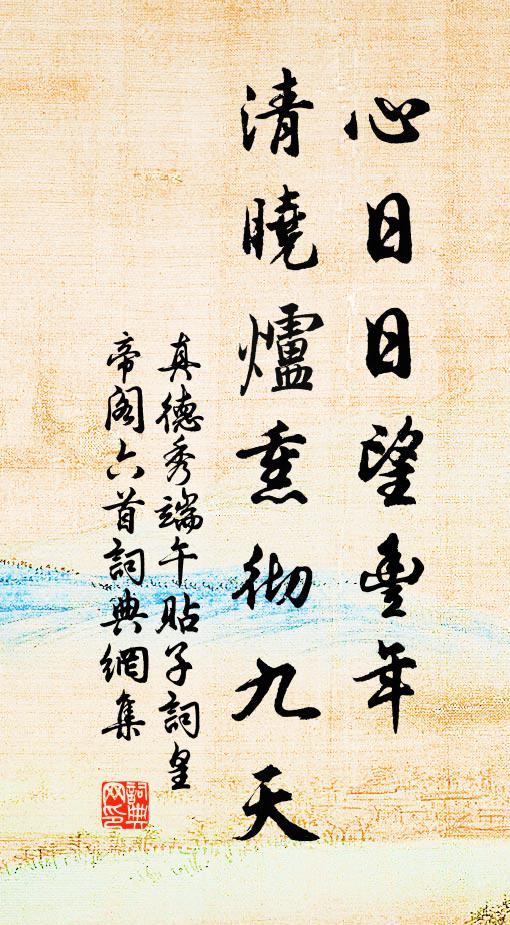 心日日望豐年
清曉爐熏彻九天
真德秀端午貼子詞皇
帝閣六首詞典網集
詞典
网印